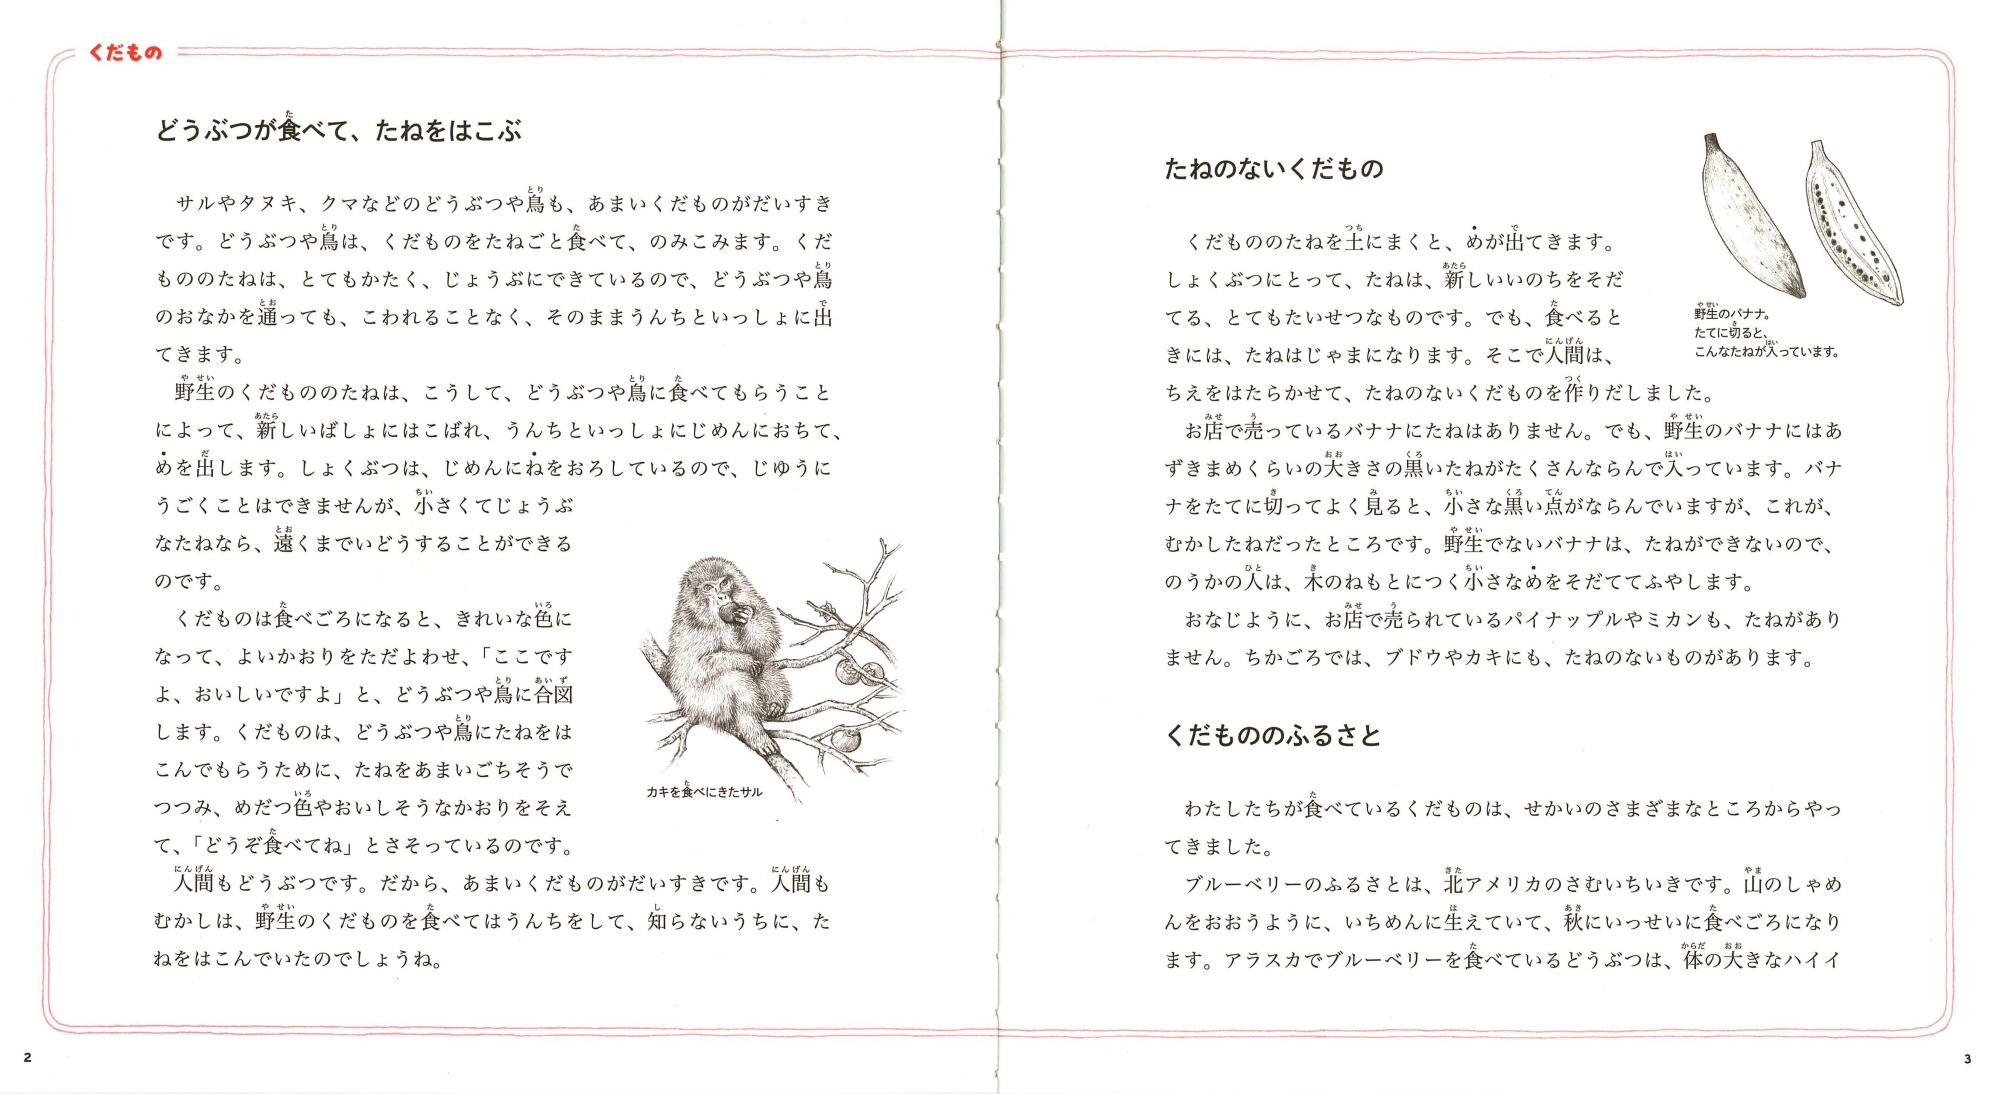 くだもの
どうぶつが食べて、たねをはこぶ
サルやタヌキ、クマなどのどうぶつや鳥も、あまいくだものがだいすき
です。どうぶつや鳥は、くだものをたねごと食べて、のみこみます。くだ
もののたねは、とてもかたく、じょうぶにできているので、どうぶつや鳥
のおなかを通っても、こわれることなく、そのままうんちといっしょに出
てきます。
野生のくだもののたねは、こうして、どうぶつや鳥に食べてもらうこと
によって、新しいばしょにはこばれ、うんちといっしょにじめんにおちて、
めを出します。しょくぶつは、じめんにねをおろしているので、じゆうに
うごくことはできませんが、小さくてじょうぶ
なたねなら、遠くまでいどうすることができる
のです。
くだものは食べごろになると、きれいな色に
なって、よいかおりをただよわせ、「ここです
よ、おいしいですよ」と、どうぶつや鳥に合図
します。くだものは、どうぶつや鳥にたねをは
こんでもらうために、たねをあまいごちそうで
つつみ、めだつ色やおいしそうなかおりをそえ
て、「どうぞ食べてね」とさそっているのです。
人間もどうぶつです。だから、あまいくだものがだいすきです。人間も
むかしは、野生のくだものを食べてはうんちをして、知らないうちに、た
ねをはこんでいたのでしょうね。
カキを食べにきたサル
2
たねのないくだもの
くだもののたねを土にまくと、めが出てきます。
しょくぶつにとって、たねは、新しいいのちをそだ
てる、とてもたいせつなものです。でも、食べると
きには、たねはじゃまになります。そこで人間は、
ちえをはたらかせて、たねのないくだものを作りだしました。
お店で売っているバナナにたねはありません。でも、野生のバナナにはあ
ずきまめくらいの大きさの黒いたねがたくさんならんで入っています。バナ
ナをたてに切ってよく見ると、小さな黒い点がならんでいますが、これが、
むかしたねだったところです。野生でないバナナは、たねができないので、
のうかの人は、木のねもとにつく小さなめをそだててふやします。
おなじように、お店で売られているパイナップルやミカンも、たねがあり
ません。ちかごろでは、ブドウやカキにも、たねのないものがあります。
野生のバナナ。
たてに切ると、
こんなたねが入っています。
くだもののふるさと
わたしたちが食べているくだものは、せかいのさまざまなところからやっ
てきました。
ブルーベリーのふるさとは、北アメリカのさむいちいきです。山のしゃめ
んをおおうように、いちめんに生えていて、秋にいっせいに食べごろになり
ます。アラスカでブルーベリーを食べているどうぶつは、体の大きなハイイ
3